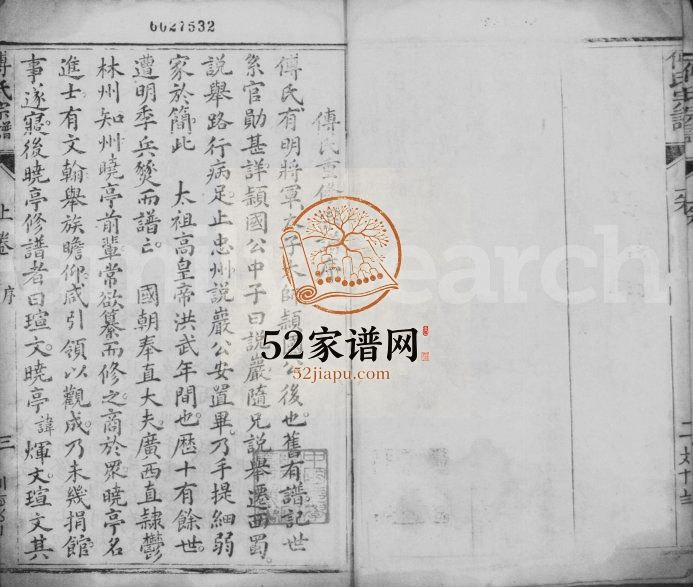 0027532
傅氏重修
傅氏有明將軍太子太師潁國公後也舊有譜記世
系官勛甚詳潁國公中子曰説巖隨兄説舉遷西蜀
説舉路行病足止忠州説巖公安置畢乃手提細弱
家於簡此 太祖高皇帝洪武年間也歷十有餘世
遭明季兵燹而譜亡 國朝奉直大夫廣西直隸鬱
林州知州曉亭前輩常欲纂而修之商於眾曉亭名
進士有文翰舉族瞻仰咸引領以觀成乃未幾捐館
事遂寢後曉亭修譜者曰瑄文曉亭諱煇文瑄文其
傅氏宗譜
上卷
序
三
52家谱网
52jiapu.com